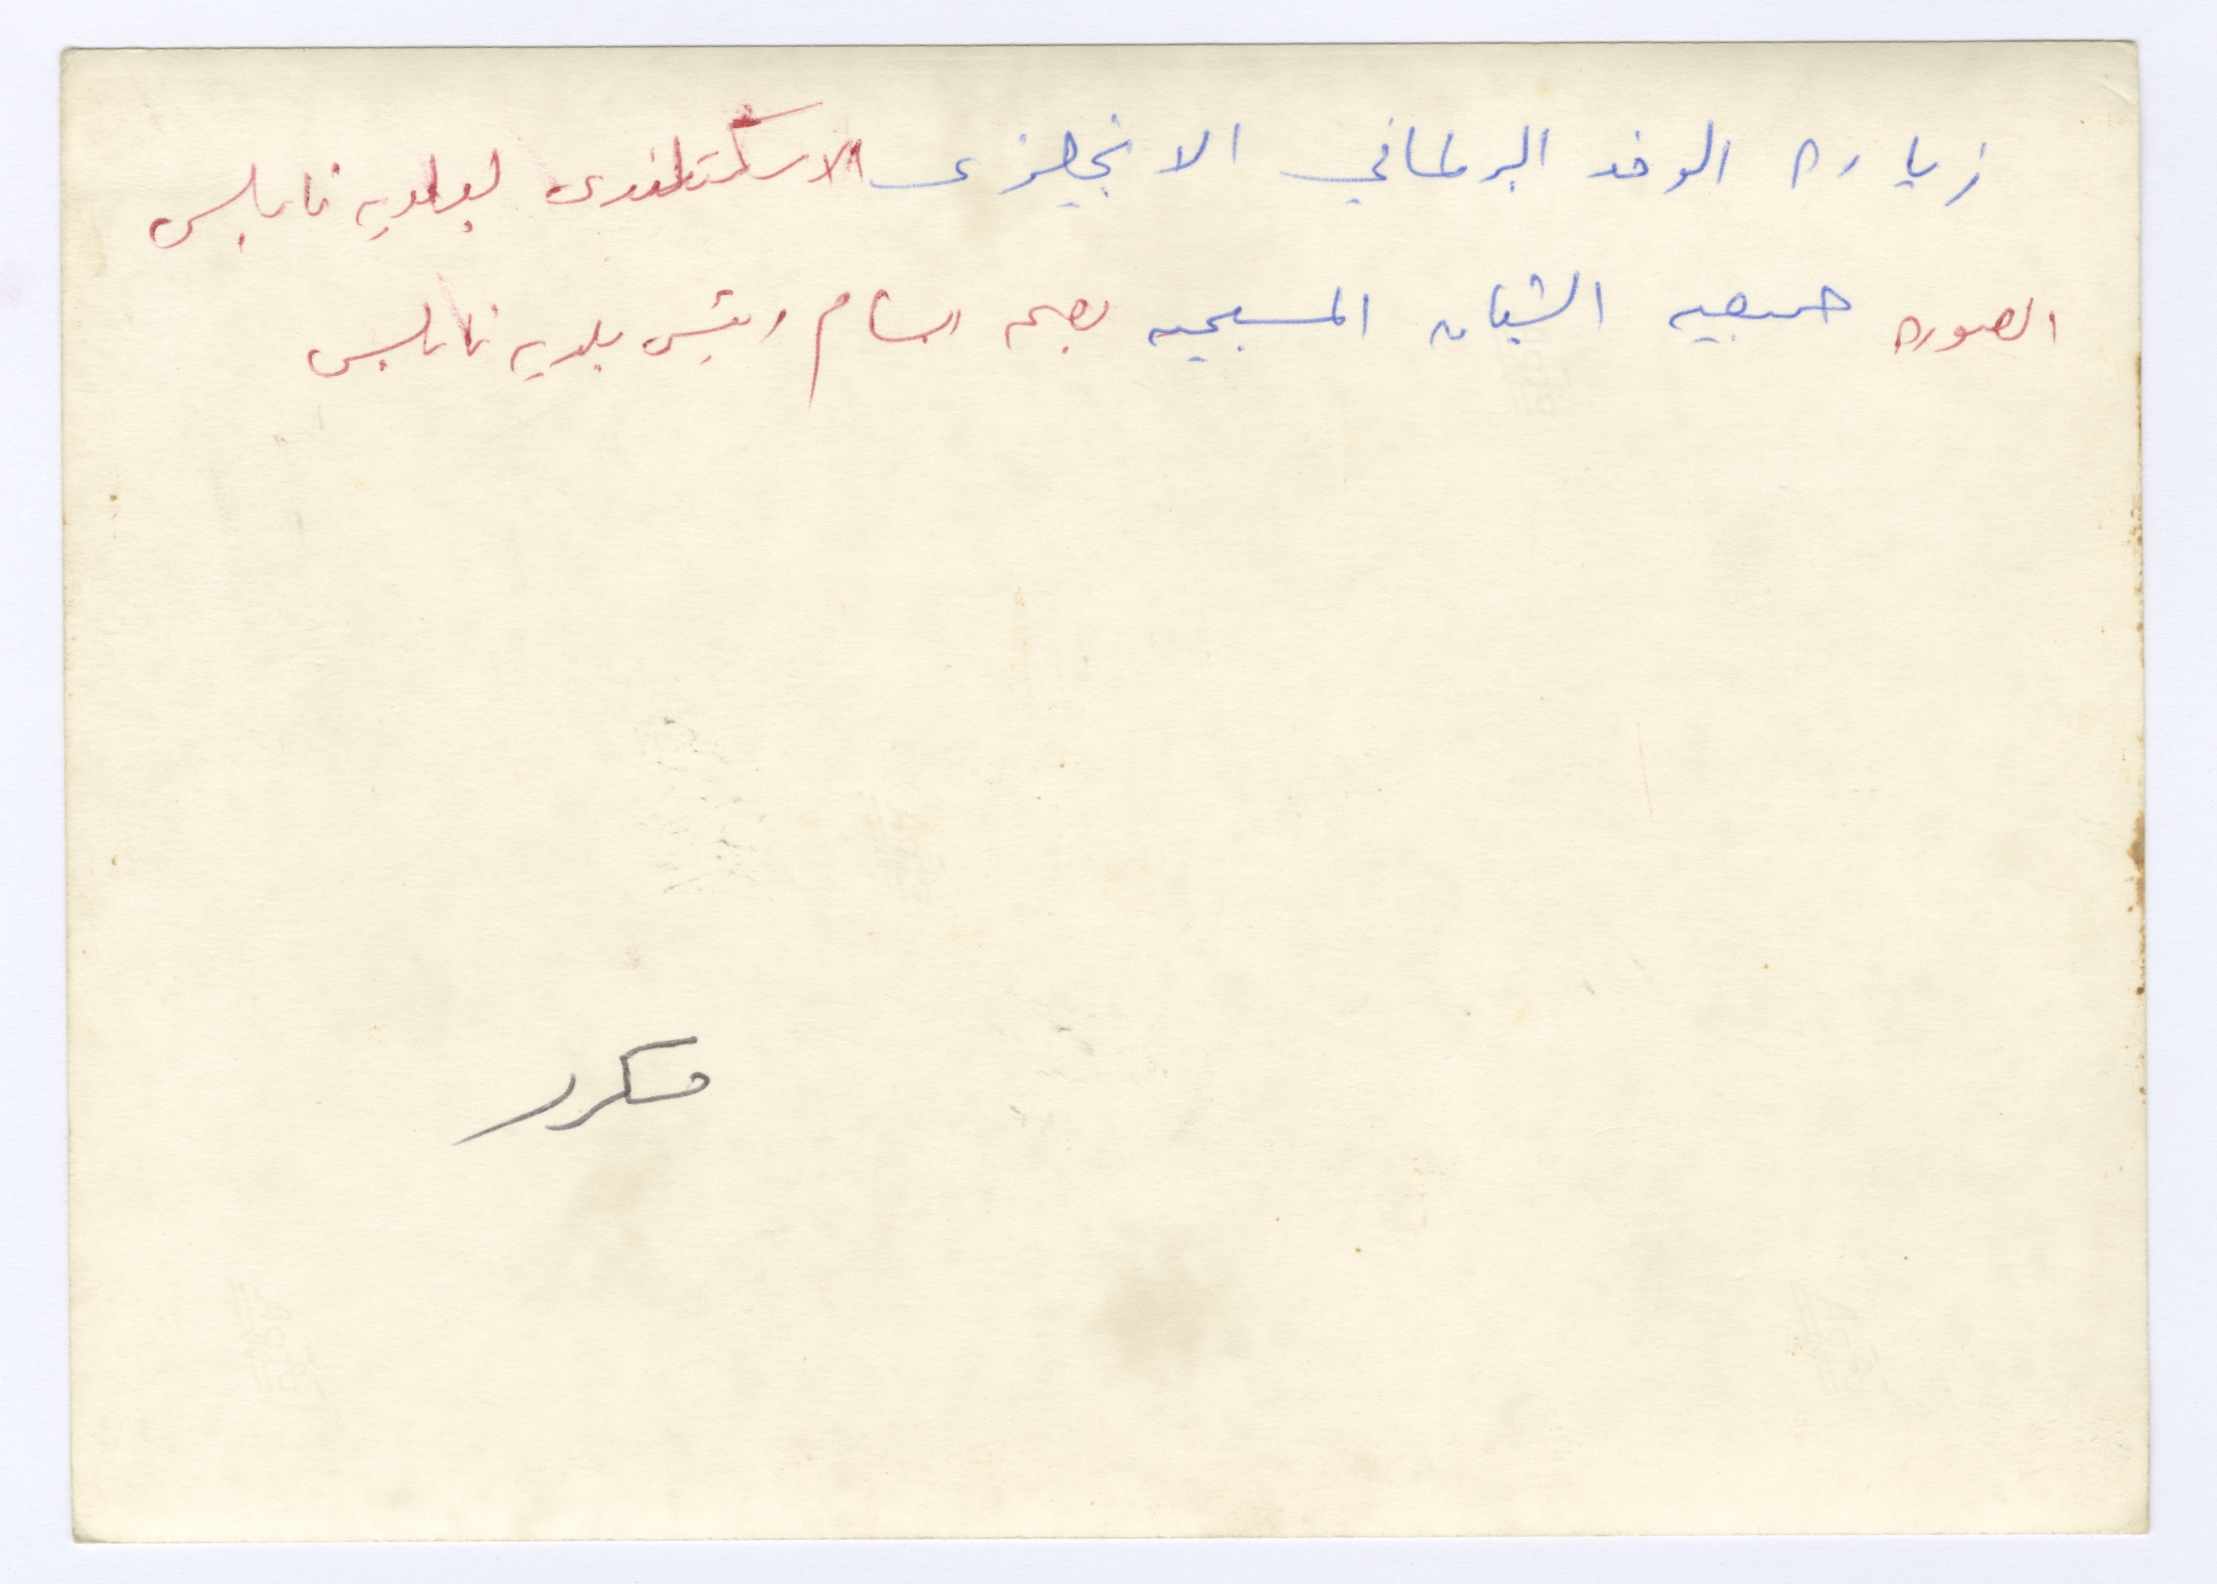 زياره الوفد البرلماني الانجليزي الاسكتلندي لبلديه نابلس
الصوره جمعيه الشبان المسيحيه بسام رئيس بلديه نابلس
مكرر